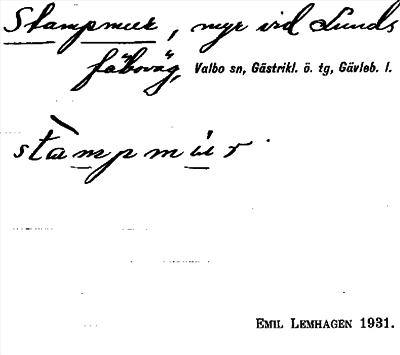 Stampmur, myr vid Lunds
fäboväg, Valbo sn, Gästrikl. ö. tg, Gävleb. l.
stàmpmúr
EMIL LEMHAGEN 1931.